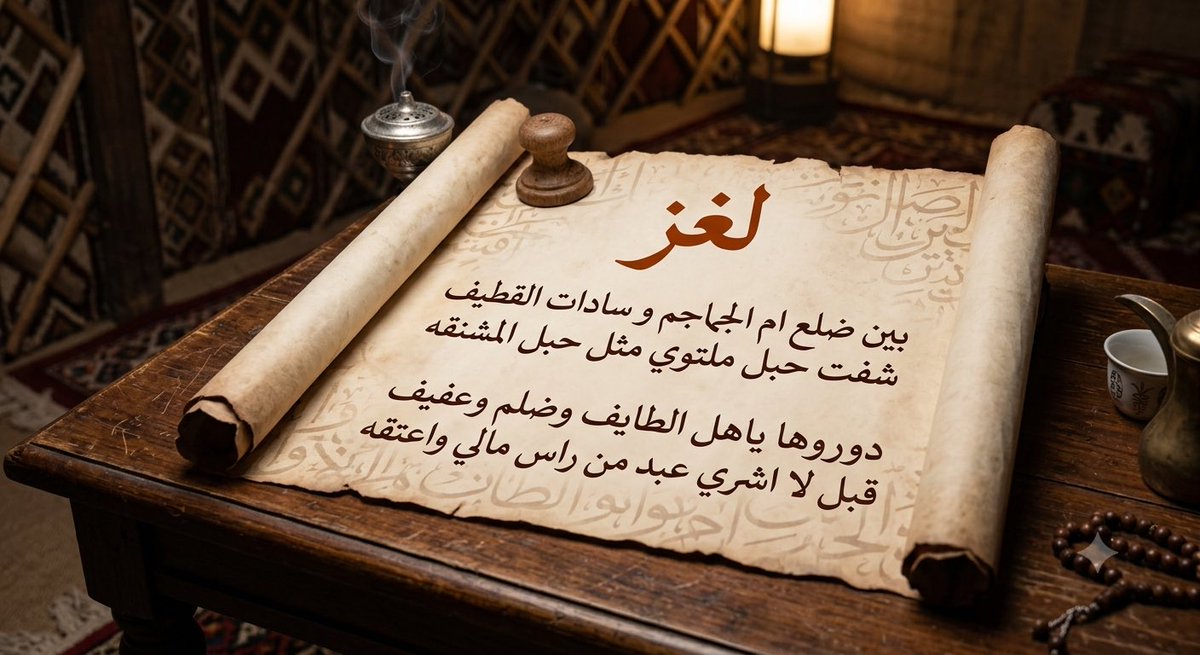 لغز
بين ضلع ام الجماجم و سادات القطيف
شفت حبل ملتوي مثل حبل المشنقه
دوروها ياهل الطايف وضلم وعفيف
قبل لا اشري عبد من راس مالي واعتقه